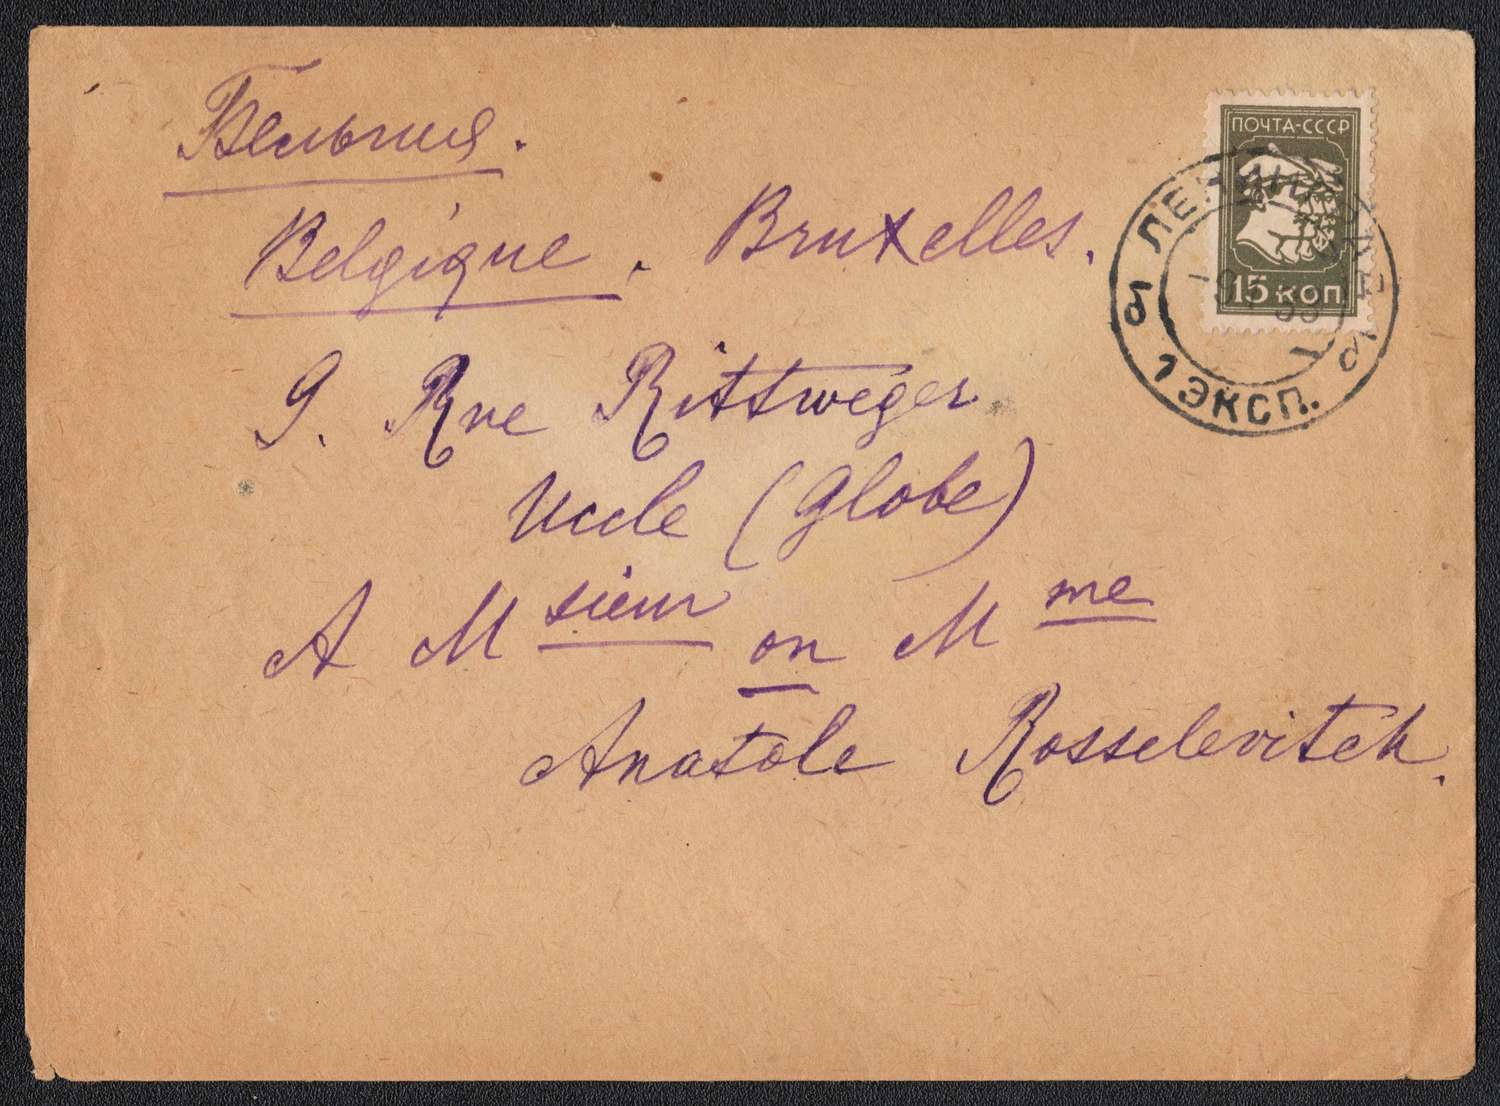 Бельгия.
Belgique. Bruxelles.
9. Rue Rittweger
Uccle (Globe)
A Msieur ou Mme
Anatole Rosselevitch.
ПОЧТА-СССР
15 КОП.
б 1 ЭКСП.